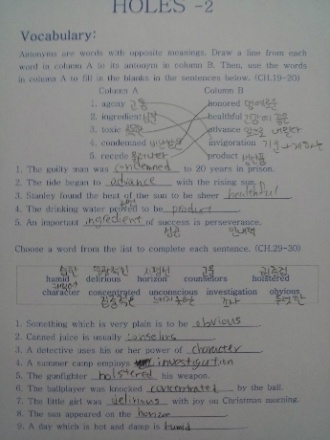 HOLES -2
Vocabulary:
Antonyms are words with opposite meanings. Draw a line from each
word in column A to its anonym in column B. Then, use the words
in column A to fill in the blanks in the sentences below. (CH.19-20)
Column A Column B
1. agony 고통 honored
2. ingredient healthful
3. toxic advance
4. condemned invigoration
5. recede product
1. The guilty man was condemned to 20 years in prison.
2. The tide began to advance with the rising sun.
3. Stanley found the heat of the sun to be sheer healthful
4. The drinking water proved to be product.
5. An important ingredient of success is perseverance.
Choose a word from the list to complete each sentence. (CH.29-30)
humid delirious horizon counselors holstered
character concentrated unconscious investigation obvious
1. Something which is very plain is to be obvious.
2. Canned juice is usually conselors.
3. A detective uses his or her power of character.
4. A summer camp employs investigation
5. The gunfighter holstered his weapon.
6. The ballplayer was knocked concentrated by the ball.
7. The little girl was delirious with joy on Christmas morning.
8. The sun appeared on the horizon.
9. A day which is hot and damp is humid.